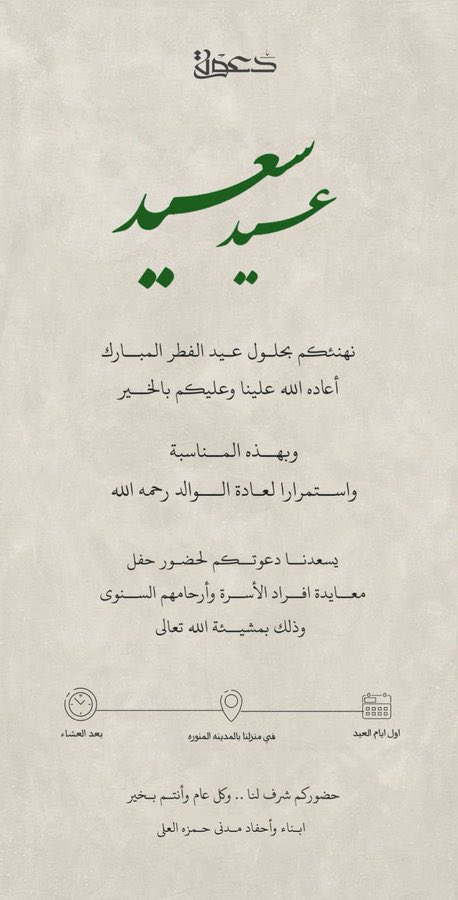 دعوة
عيد سعيد
نهنئكم بحلول عيد الفطر المبارك
أعاده الله علينا وعليكم بالخير
وبهذه المناسبة
واستمرارا لعادة الوالد رحمه الله
يسعدنا دعوتكم لحضور حفل
معايدة افراد الأسرة وأرحامهم السنوى
وذلك بمشيئة الله تعالى
اول ايام العيد
في منزلنا بالمدينه المنوره
بعد العشاء
حضوركم شرف لنا .. وكل عام وأنتم بخير
ابناء وأحفاد مدنى حمزه العلى